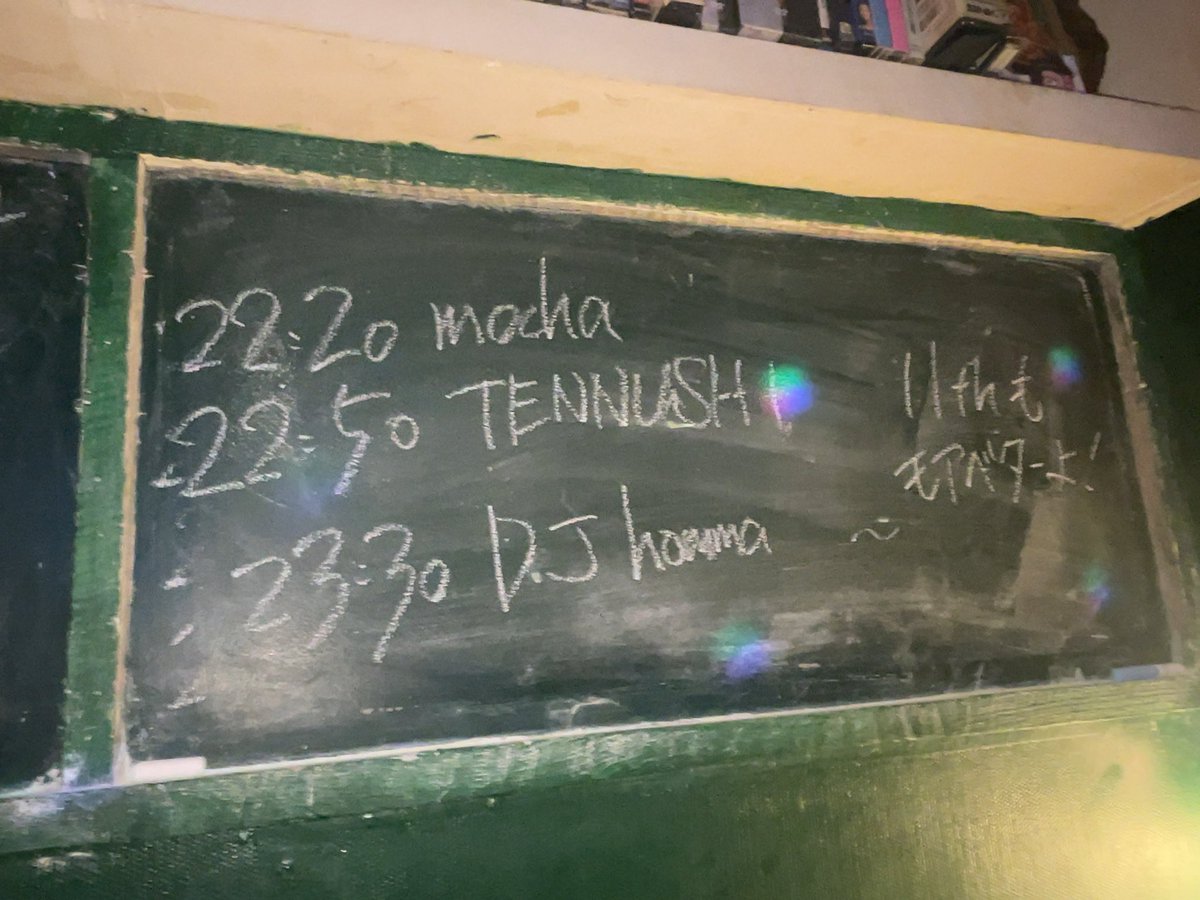 22:20 mocha
22:50 TENNUSH!
23:30 D.J honma ~
11thも
モアベターよ!